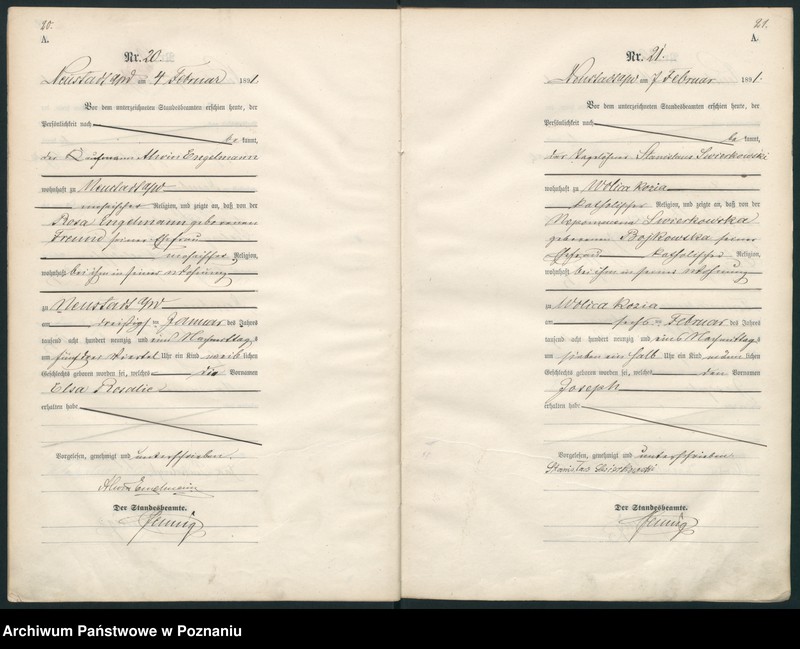 20.
A.
Nr. 20.
Neustadt a/W am 4 Februar 1891
Vor dem unterzeichneten Standesbeamten erschien heute, der
Persönlichkeit nach
be kannt,
der Kaufmann Alwin Engelmann
wohnhaft zu Neustadt a/W
mosaischer Religion, und zeigte an, daß von der
Rosa Engelmann geborenen
Freund seiner Ehefrau
mosaischer Religion,
wohnhaft bei ihm in seiner Wohnung
zu Neustadt a/W
am dreißigsten Januar des Jahres
tausend acht hundert neunzig und eins Nachmittags
um fünf drei viertel Uhr ein Kind weib lichen
Geschlechts geboren worden sei, welches die Vornamen
Elsa Rosalie
erhalten habe
Vorgelesen, genehmigt und unterschrieben
Alwin Engelmann
Der Standesbeamte.
21.
A.
Nr. 21.
Neustadt a/W am 7 Februar 1891.
Vor dem unterzeichneten Standesbeamten erschien heute, der
Persönlichkeit nach
be kannt,
der Tagelöhner Stanislaus Swierkowski
wohnhaft zu Wolica Kozia
katholischer Religion, und zeigte an, daß von der
Nepomucena Swierkowska
geborenen Bojkowska seiner
Ehefrau katholischer Religion,
wohnhaft bei ihm in seiner Wohnung
zu Wolica Kozia
am sechsten Februar des Jahres
tausend acht hundert neunzig und eins Nachmittags
um sieben ein halb Uhr ein Kind männ lichen
Geschlechts geboren worden sei, welches den Vornamen
Joseph
erhalten habe
Vorgelesen, genehmigt und unterschrieben
Stanisław Swierkowski
Der Standesbeamte.
Archiwum Państwowe w Poznaniu